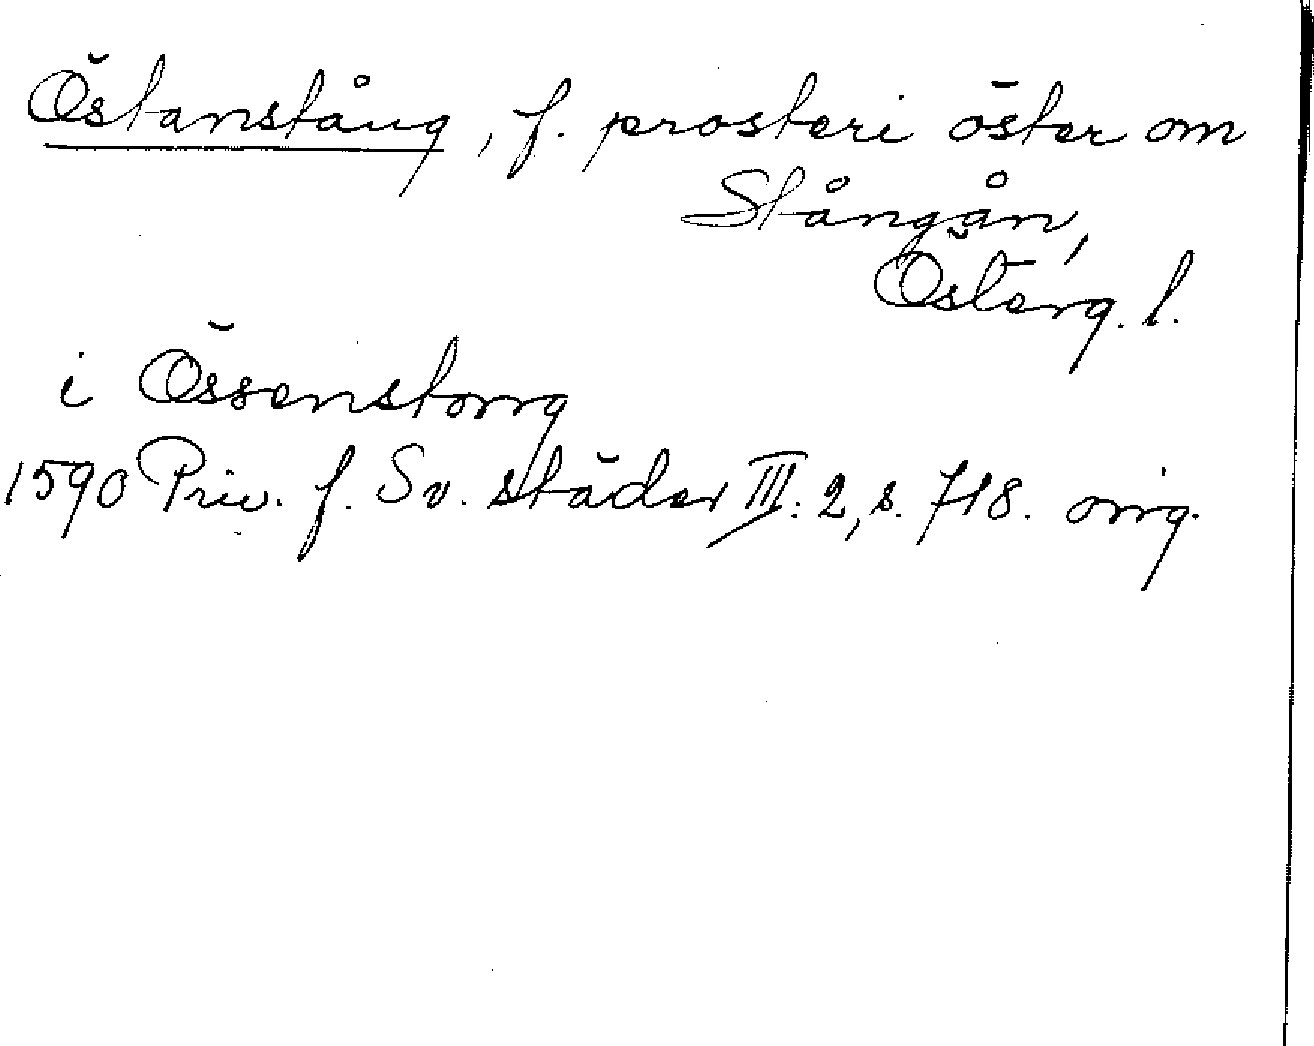 Östanstång, f. prosteri öster om
Stångån,
Österg. l.
i Össenstong
1590 Priv. f. Sv. städer III: 2, s. 718. orig.